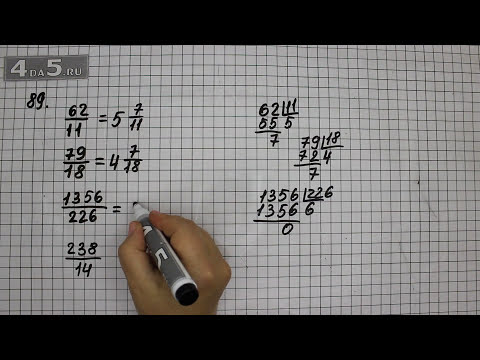 4DA5.RU
89.
62/11 = 5 7/11
79/18 = 4 7/18
1356/226 =
238/14
62 | 11
55 | 5
7
79 | 18
72 | 4
7
1356 | 226
1356 | 6
0